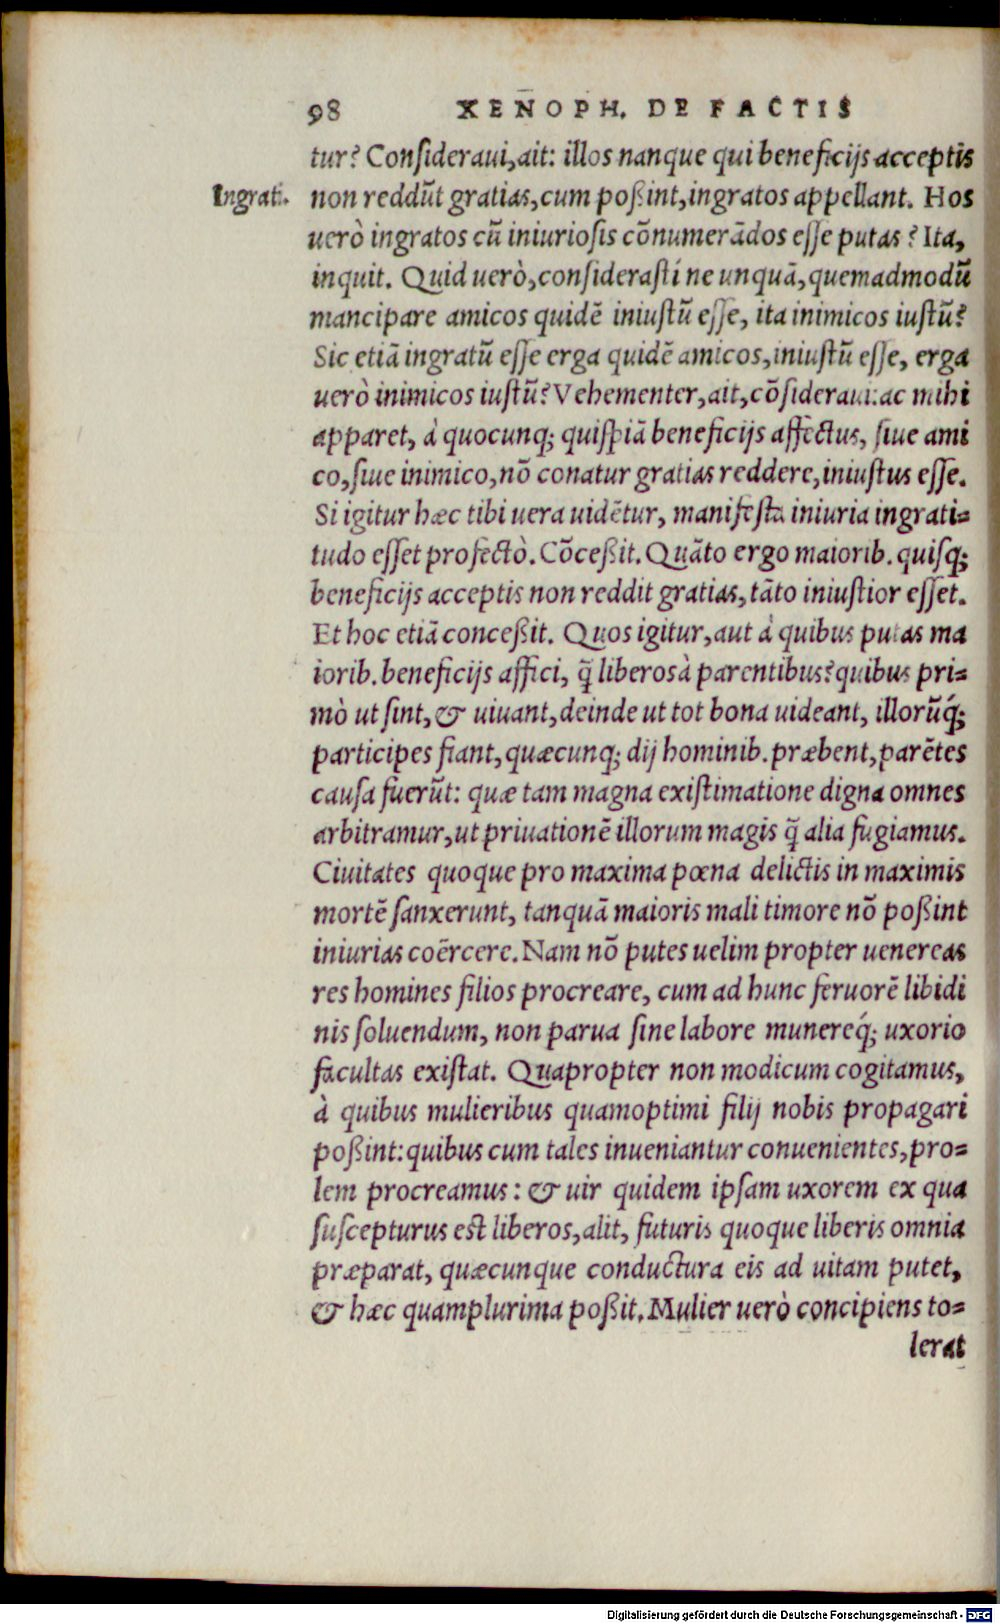 98 XENOPH. DE FACTIS
tur? Conſideraui, ait: illos nanque qui beneficijs acceptis
Ingrati.
non reddūt gratias, cum poßint, ingratos appellant. Hos
uerò ingratos cū iniurioſis cōnumerādos eſſe putas? Ita,
inquit. Quid uerò, conſideraſtí ne unquā, quemadmodū
mancipare amicos quidē iniuſtū eſſe, ita inimicos iuſtū?
Sic etiā ingratū eſſe erga quidē amicos, iniuſtū eſſe, erga
uerò inimicos iuſtū? Vehementer, ait, cōſideraui: ac mihi
apparet, à quocunq; quiſpiā beneficijs affectus, ſiue ami
co, ſiue inimico, nō conatur gratias reddere, iniuſtus eſſe.
Si igitur hæc tibi uera uidētur, manifeſta iniuria ingrati=
tudo eſſet profectò. Cōceßit. Quāto ergo maiorib. quiſq;
beneficijs acceptis non reddit gratias, tāto iniuſtior eſſet.
Et hoc etiā conceßit. Quos igitur, aut à quibus putas ma
iorib. beneficijs affici, q̄ liberos à parentibus? quibus pri=
mò ut ſint, & uiuant, deinde ut tot bona uideant, illorūq́;
participes fiant, quæcunq; dij hominib. præbent, parētes
cauſa fuerūt: quæ tam magna exiſtimatione digna omnes
arbitramur, ut priuationē illorum magis q̄ alia fugiamus.
Ciuitates quoque pro maxima pœna delictis in maximis
mortē ſanxerunt, tanquā maioris mali timore nō poßint
iniurias coērcere. Nam nō putes uelim propter uenereas
res homines filios procreare, cum ad hunc feruorē libidi
nis ſoluendum, non parua ſine labore munereq́; uxorio
facultas exiſtat. Quapropter non modicum cogitamus,
à quibus mulieribus quamoptimi filij nobis propagari
poßint: quibus cum tales inueniantur conuenientes, pro=
lem procreamus: & uir quidem ipſam uxorem ex qua
ſuſcepturus eſt liberos, alit, futuris quoque liberis omnia
præparat, quæcunque conductura eis ad uitam putet,
& hæc quamplurima poßit. Mulier uerò concipiens to=
lerat
Digitalisierung gefördert durch die Deutsche Forschungsgemeinschaft - DFG